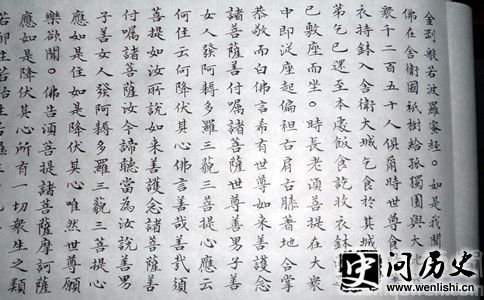 金剛般若波羅蜜經。如是我聞
佛在舍衛國祇樹給孤獨園與大
衆千二百五十人俱爾時世尊食
衣持鉢入舍衛大城乞食於其城
第乞已還至本處飯食訖收衣鉢
已敷座而坐。時長老須菩提在大衆
中即從座起偏袒右肩右膝著地合掌
恭敬而白佛言希有世尊如來善護念
諸菩薩善付囑諸菩薩世尊善男子善
女人發阿耨多羅三藐三菩提心應云
何住云何降伏其心佛言善哉善哉須
菩提如汝所說如來善護念諸菩薩善
付囑諸菩薩汝今諦聽當為汝說善男
子善女人發阿耨多羅三藐三菩提心
應如是住如是降伏其心唯然世尊願
樂欲聞。佛告須菩提諸菩薩摩訶薩
應如是降伏其心所有一切衆生之類
若卵生若胎生若
史问历史
www.wenlishi.cn